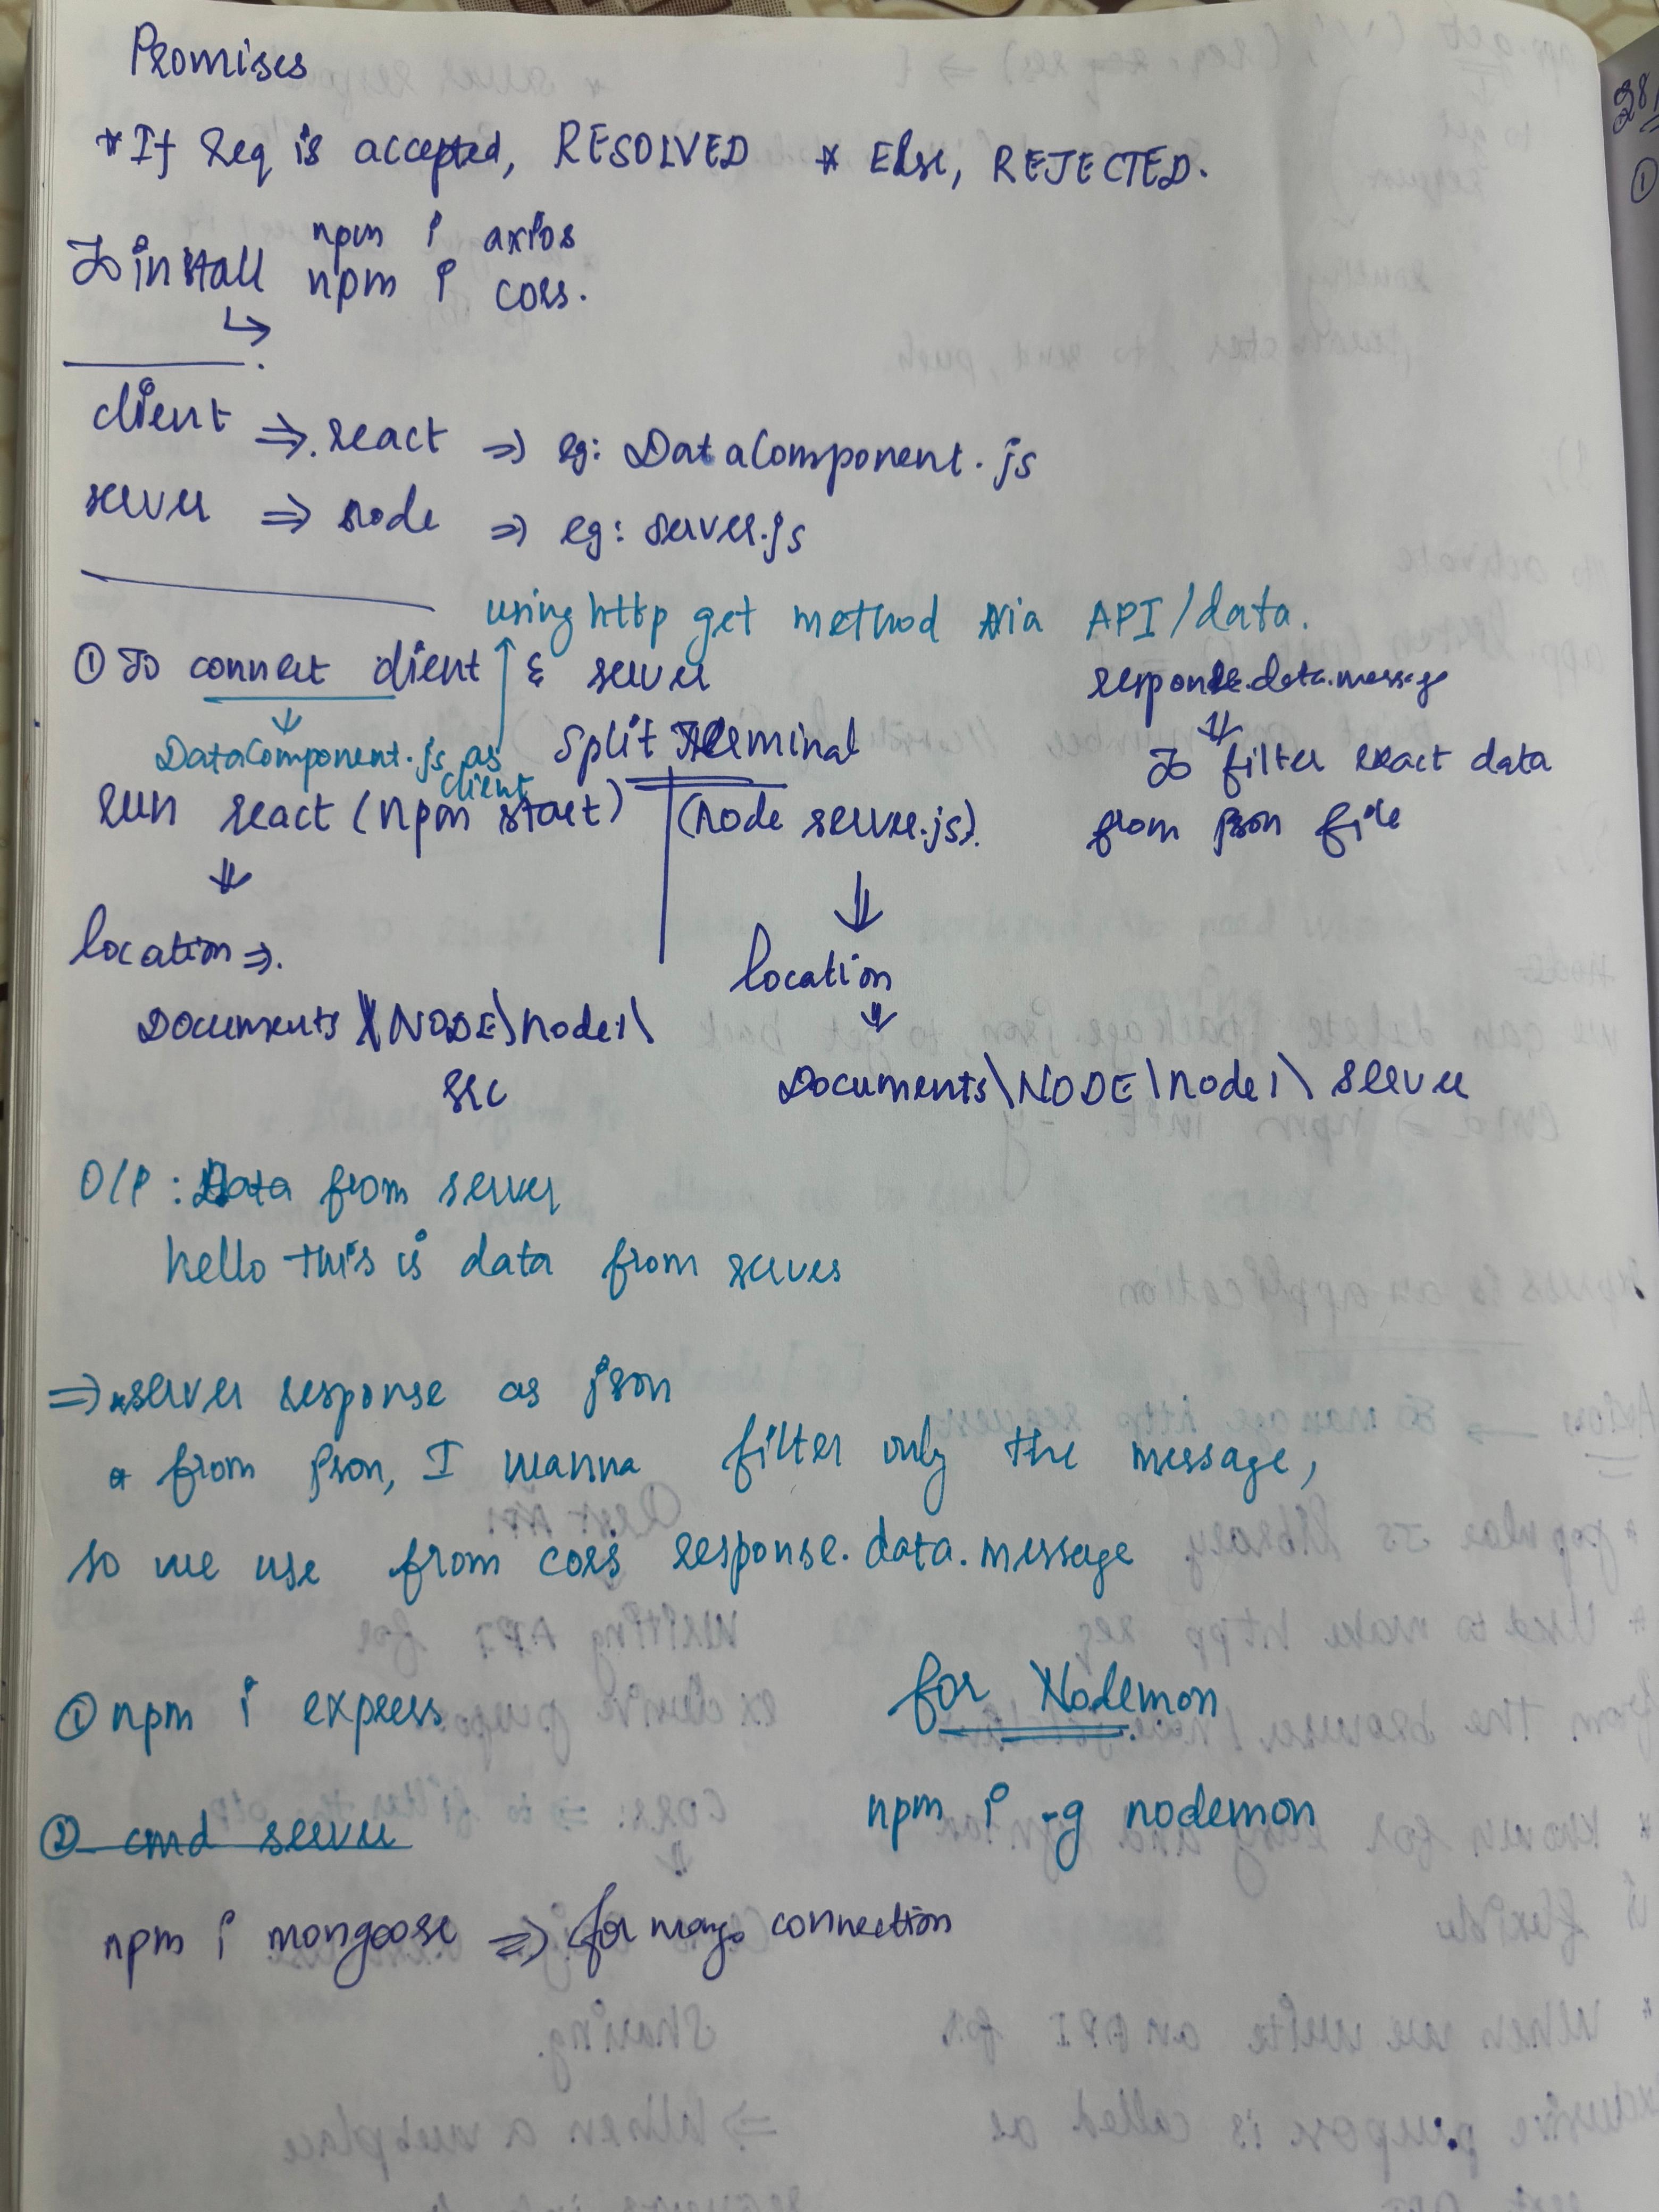 Promises
* If Req is accepted, RESOLVED * Else, REJECTED.
To install npm i axios
npm i cors.
↳
client ⇒ react ⇒ eg: DataComponent.js
server ⇒ node ⇒ eg: server.js
using http get method via API/data.
① To connect client & server
response.data.message
⇓
To filter exact data
from json file
DataComponent.js as client
Split Terminal
run react (npm start) | (node server.js).
⇓
location ⇒.
Documents\NODE\node1\
src
⇓
location
⇓
Documents\NODE\node1\server
O/P : Data from server
hello this is data from server
⇒ * server response as json
* from json, I wanna filter only the message,
so we use from cors response.data.message
① npm i express
② cmd server
for Nodemon
npm i -g nodemon
npm i mongoose ⇒ for mongo connection
28
①